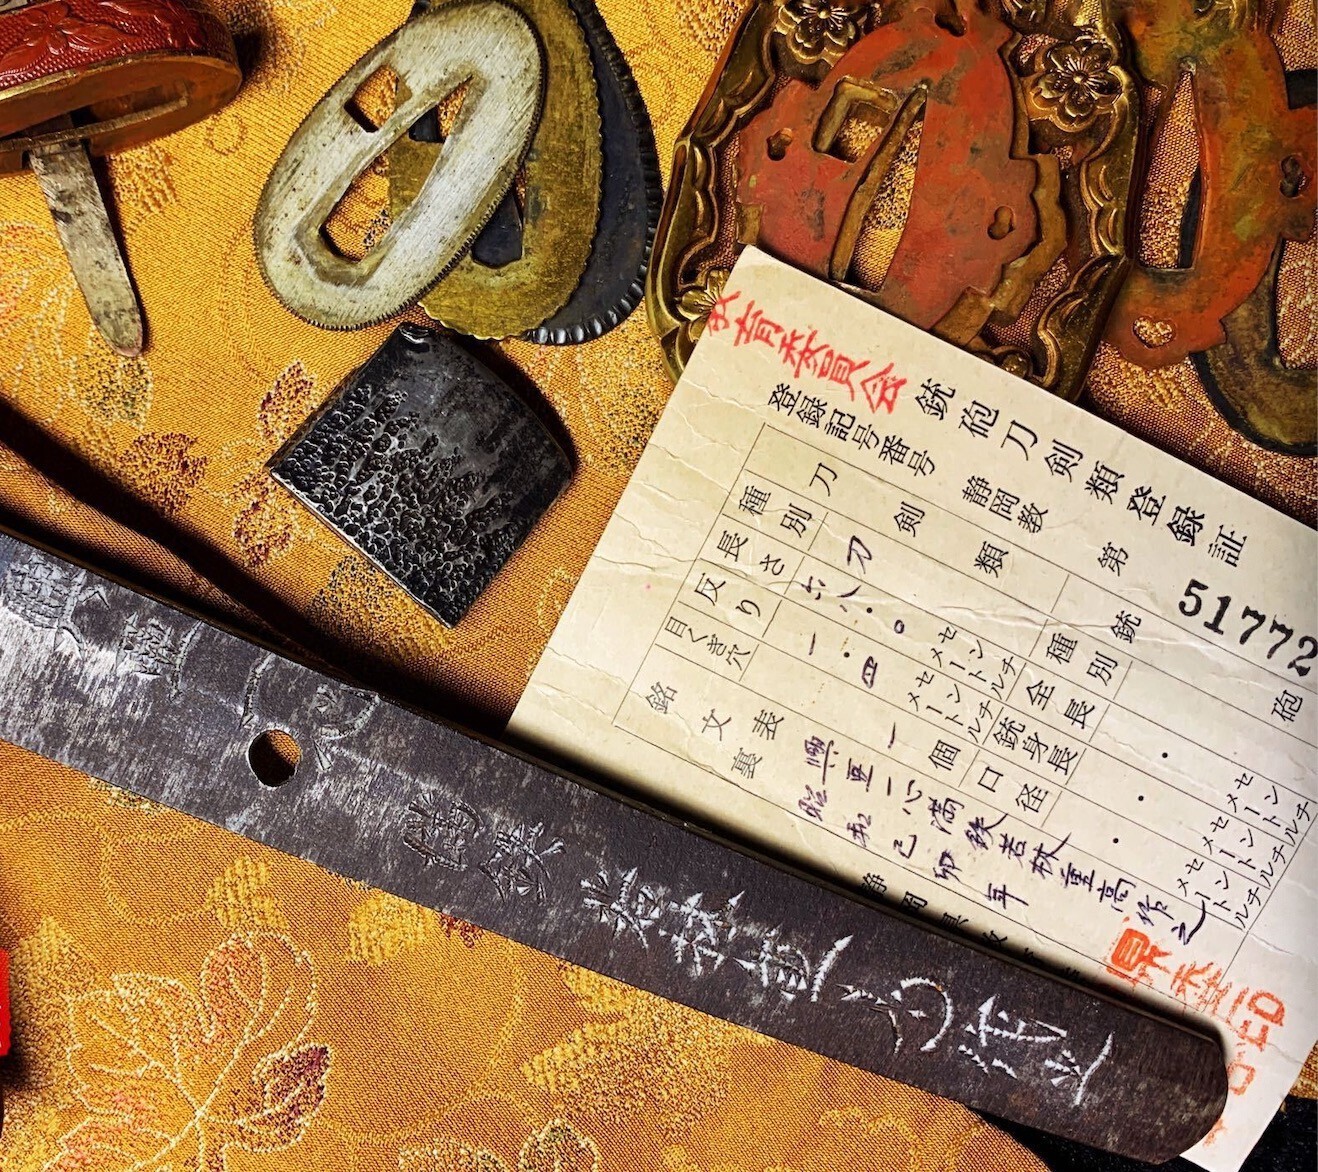 教育委員会
銃砲刀剣類登録証
登録記号番号 静岡教 第 51772
刀剣類
銃砲
種別 刀
種別
長さ 六八・〇 センチメートル
全長 ・ センチメートル
反り 一・四 センチメートル
銃身長 ・ センチメートル
目くぎ穴 一 個
口径 ・ センチメートル
銘文
表 興亜一心満鉄若林重高作之
裏 昭和己卯年
満鉄若林重高作之